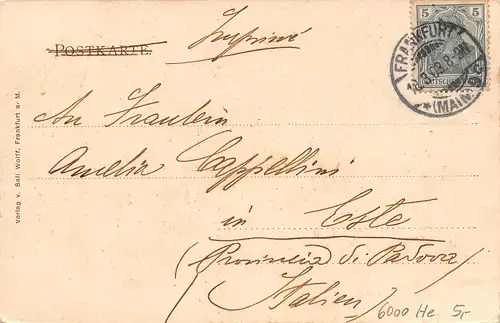 POSTKARTE.
Imprimé
5
FRANKFURT
(MAIN)
An Fraulein
Amelia Cappellini
in Este
(Provincia di Padova)
Italien
Verlag v. Sali Wolff, Frankfurt a. M.
6000 He. 5,-